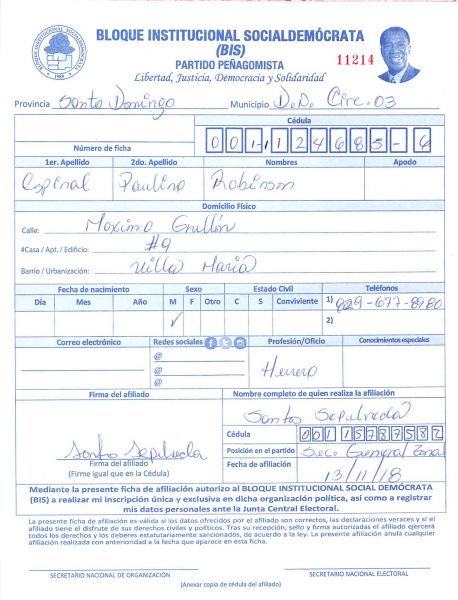 BLOQUE INSTITUCIONAL SOCIALDEMÓCRATA
(BIS)
PARTIDO PEÑAGOMISTA
11214
Libertad, Justicia, Democracia y Solidaridad
BLOQUE INSTITUCIONAL SOCIALDEMOCRATA
Provincia Santo Domingo Municipio D.N. Circ. 03
Cédula
Número de ficha 001-1124685-6
1er. Apellido 2do. Apellido Nombres Apodo
Espinal Paulino Robinson
Domicilio Físico
Calle: Maximo Grullón
#Casa / Apt. / Edificio: #9
Barrio / Urbanización: Villa Maria
Fecha de nacimiento Sexo Estado Civil Teléfonos
Día Mes Año M F Otro C S Conviviente 1) 829-677-8980
✓ 2)
Correo electrónico Redes sociales Profesión/Oficio Conocimientos especiales
@
@ Herrero
@
Firma del afiliado Nombre completo de quien realiza la afiliación
Santos Sepulveda
Cédula 001 1578758 2
Santos Sepulveda Posición en el partido Sec. General Zonal
Firma del afiliado Fecha de afiliación
(Firme igual que en la Cédula) 13/11/18
Mediante la presente ficha de afiliación autorizo al BLOQUE INSTITUCIONAL SOCIAL DEMÓCRATA
(BIS) a realizar mi inscripción única y exclusiva en dicha organización política, así como a registrar
mis datos personales ante la Junta Central Electoral.
La presente ficha de afiliación es válida si los datos ofrecidos por el afiliado son correctos, las declaraciones veraces y si el
afiliado tiene el disfrute de sus derechos civiles y políticos. Tras su recepción, sello y firma autorizadas el afiliado ejercerá
todos los derechos y los deberes estatutariamente sancionados, de acuerdo a la ley. La presente afiliación anula cualquier
afiliación realizada con anterioridad a la fecha que aparece en esta ficha.
SECRETARIO NACIONAL DE ORGANIZACIÓN SECRETARIO NACIONAL ELECTORAL
(Anexar copia de cédula del afiliado)